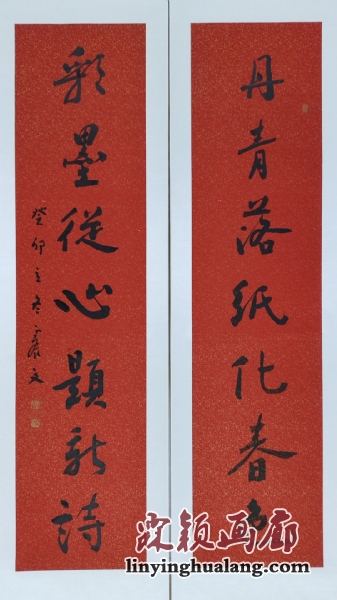 丹青落紙化春
彩墨從心題新詩
癸卯立冬
颖画廊
linyinghualang.com